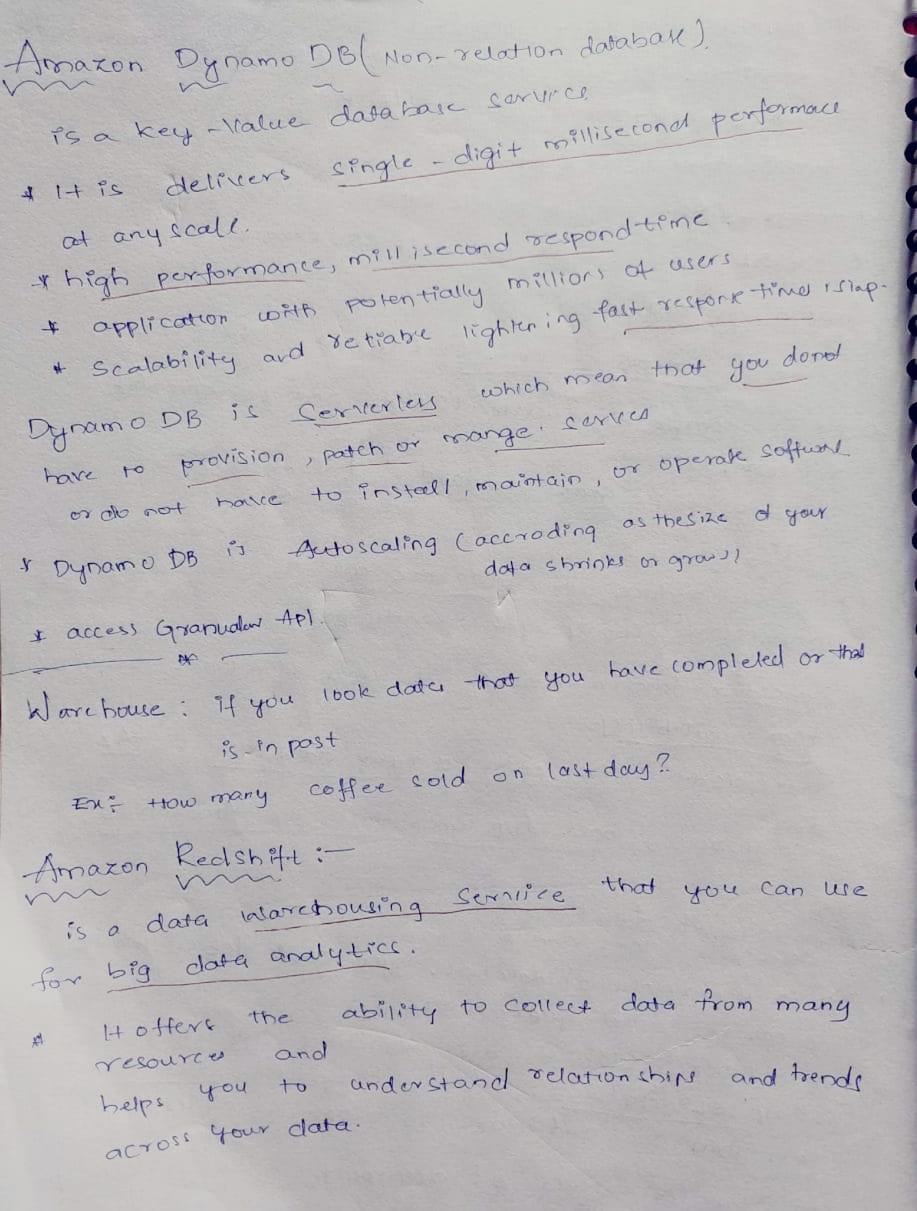 Amazon Dynamo DB (Non-relation database).
is a key-value database service
* It is delivers single-digit millisecond performace
at any scale.
* high performance, millisecond respond time.
* application with potentially millions of users
* Scalability and reliable lightening fast response times
Dynamo DB is Serverless which mean that you donot
have to provision, patch or mange serves
or do not have to install, maintain, or operate software
* Dynamo DB is Autoscaling (accroding as the size of your
data shrinks or grows)
* access Granualar API.
Warehouse : if you look data that you have completed or that
is in past
Ex: How many coffee sold on last day?
Amazon Redshift :-
is a data Warehousing Service that you can use
for big data analytics.
* It offers the ability to collect data from many
resources and
helps you to understand relationships and trends
across your data.